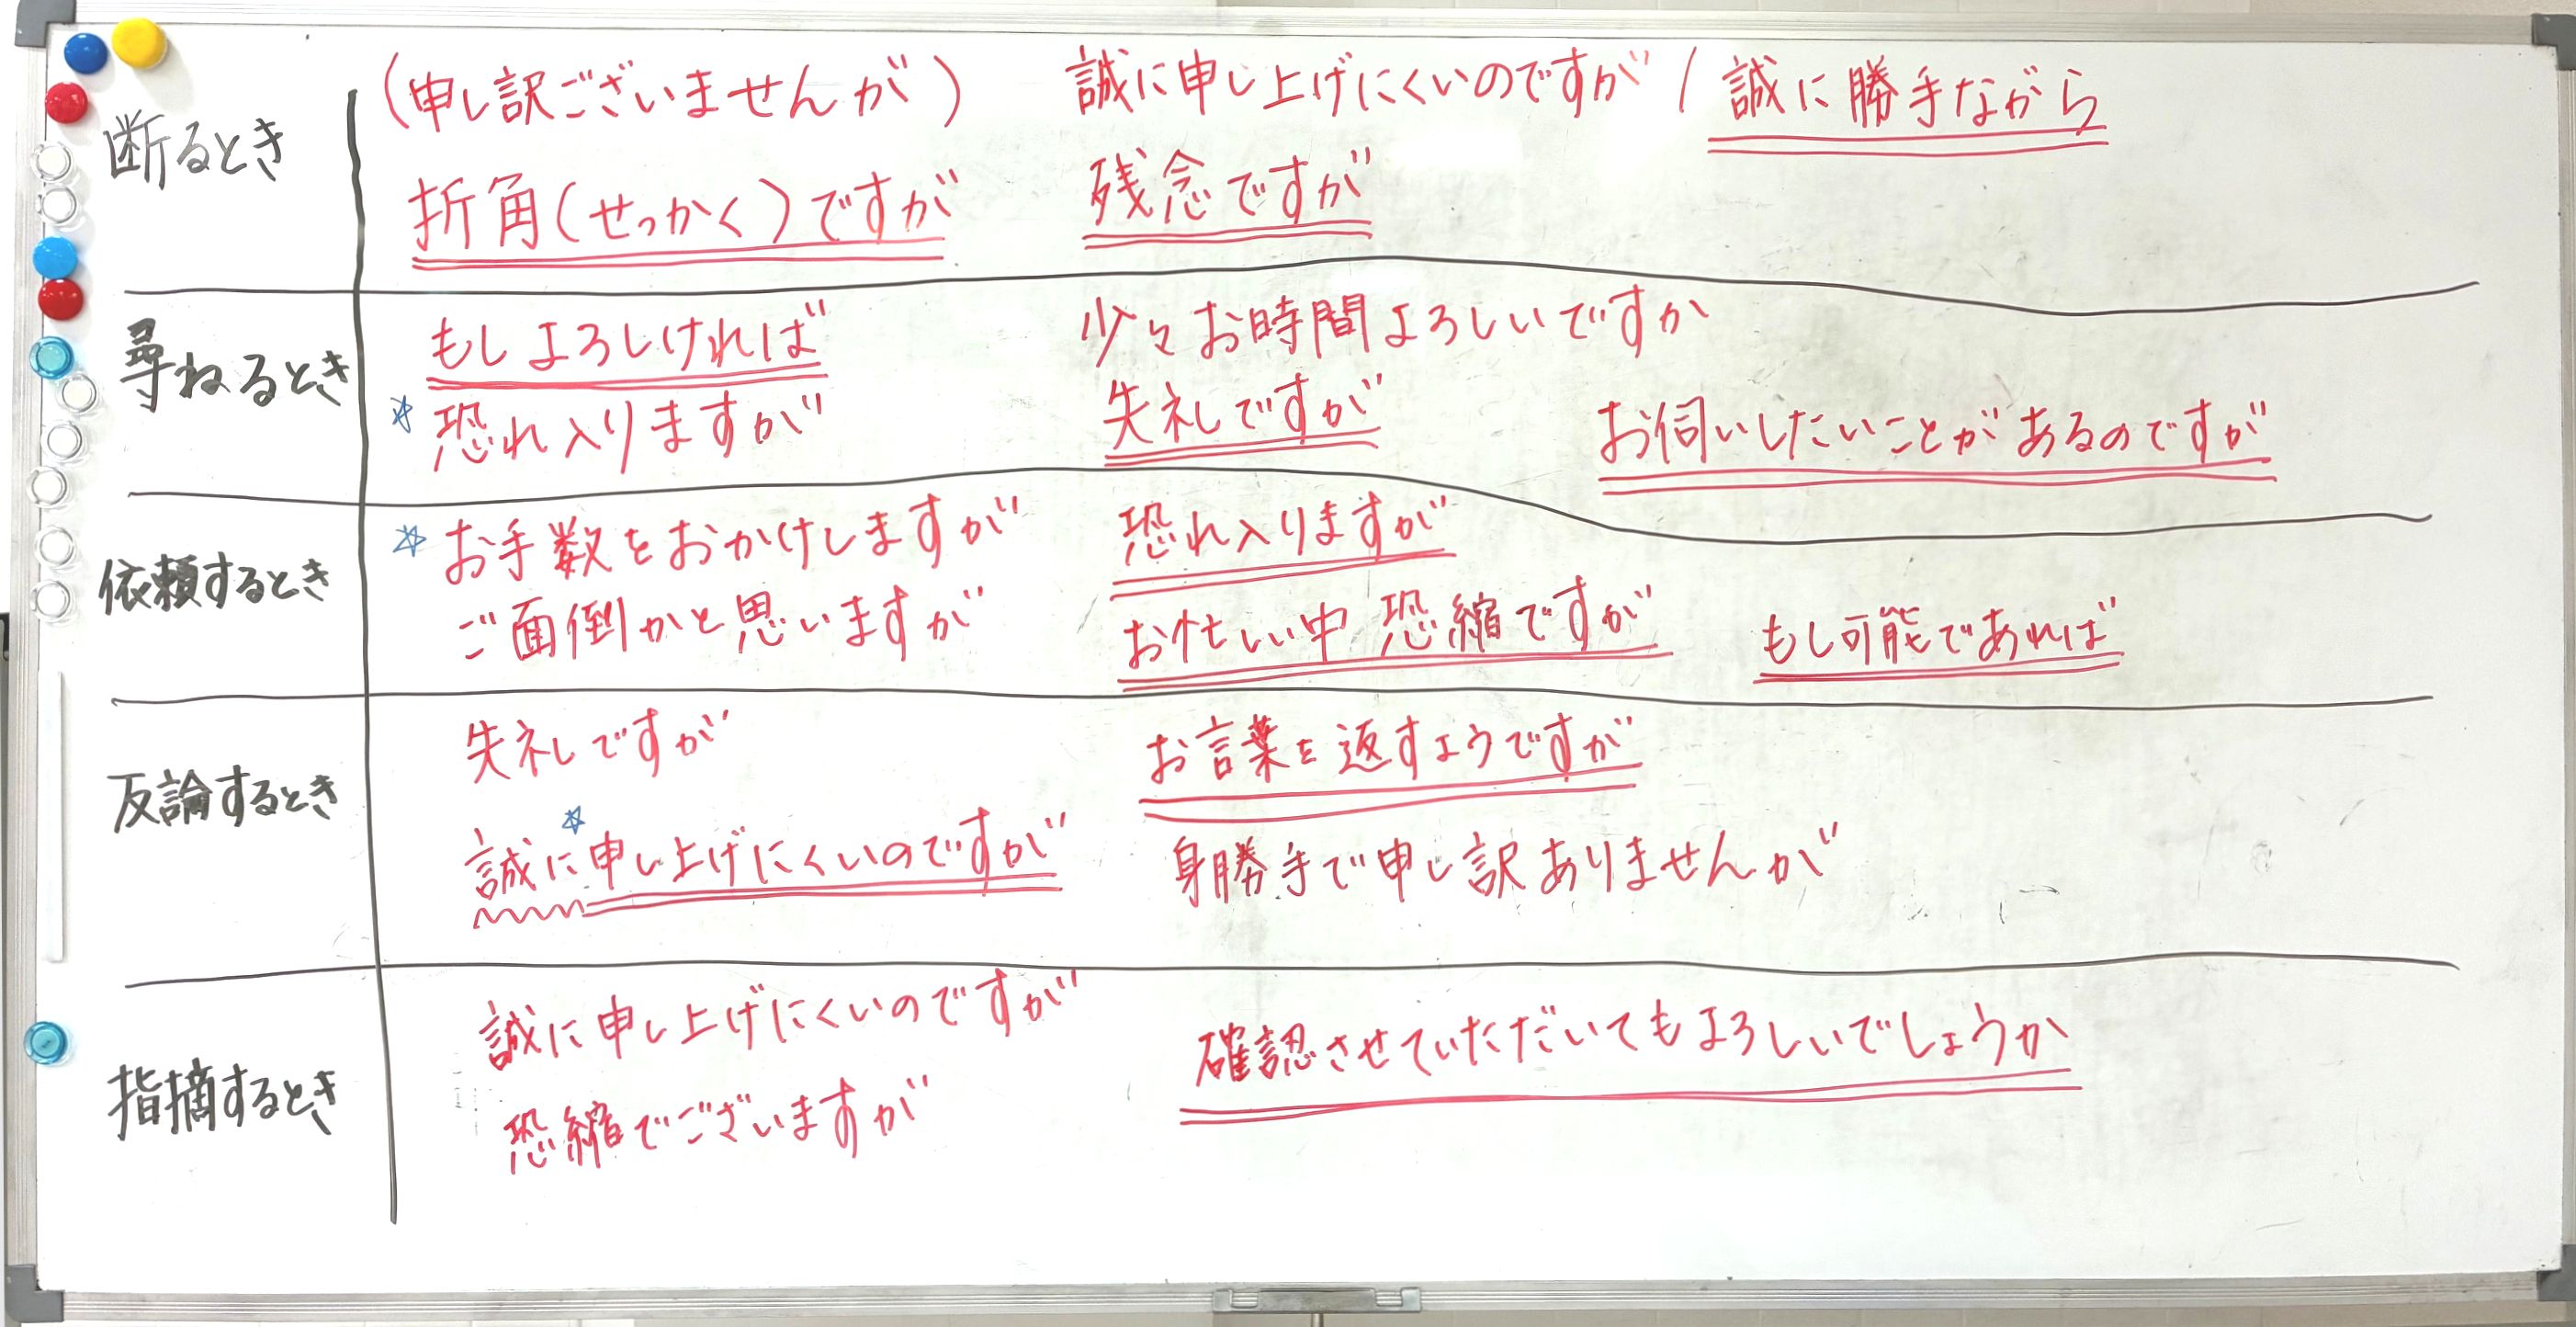 断るとき
(申し訳ございませんが) 誠に申し上げにくいのですが / 誠に勝手ながら
折角(せっかく)ですが 残念ですが
尋ねるとき
もしよろしければ 少々お時間よろしいですか
☆ 恐れ入りますが 失礼ですが お伺いしたいことがあるのですが
依頼するとき
☆ お手数をおかけしますが 恐れ入りますが
ご面倒かと思いますが お忙しい中恐縮ですが もし可能であれば
反論するとき
失礼ですが お言葉を返すようですが
☆
誠に申し上げにくいのですが 身勝手で申し訳ありませんが
指摘するとき
誠に申し上げにくいのですが 確認させていただいてもよろしいでしょうか
恐縮でございますが